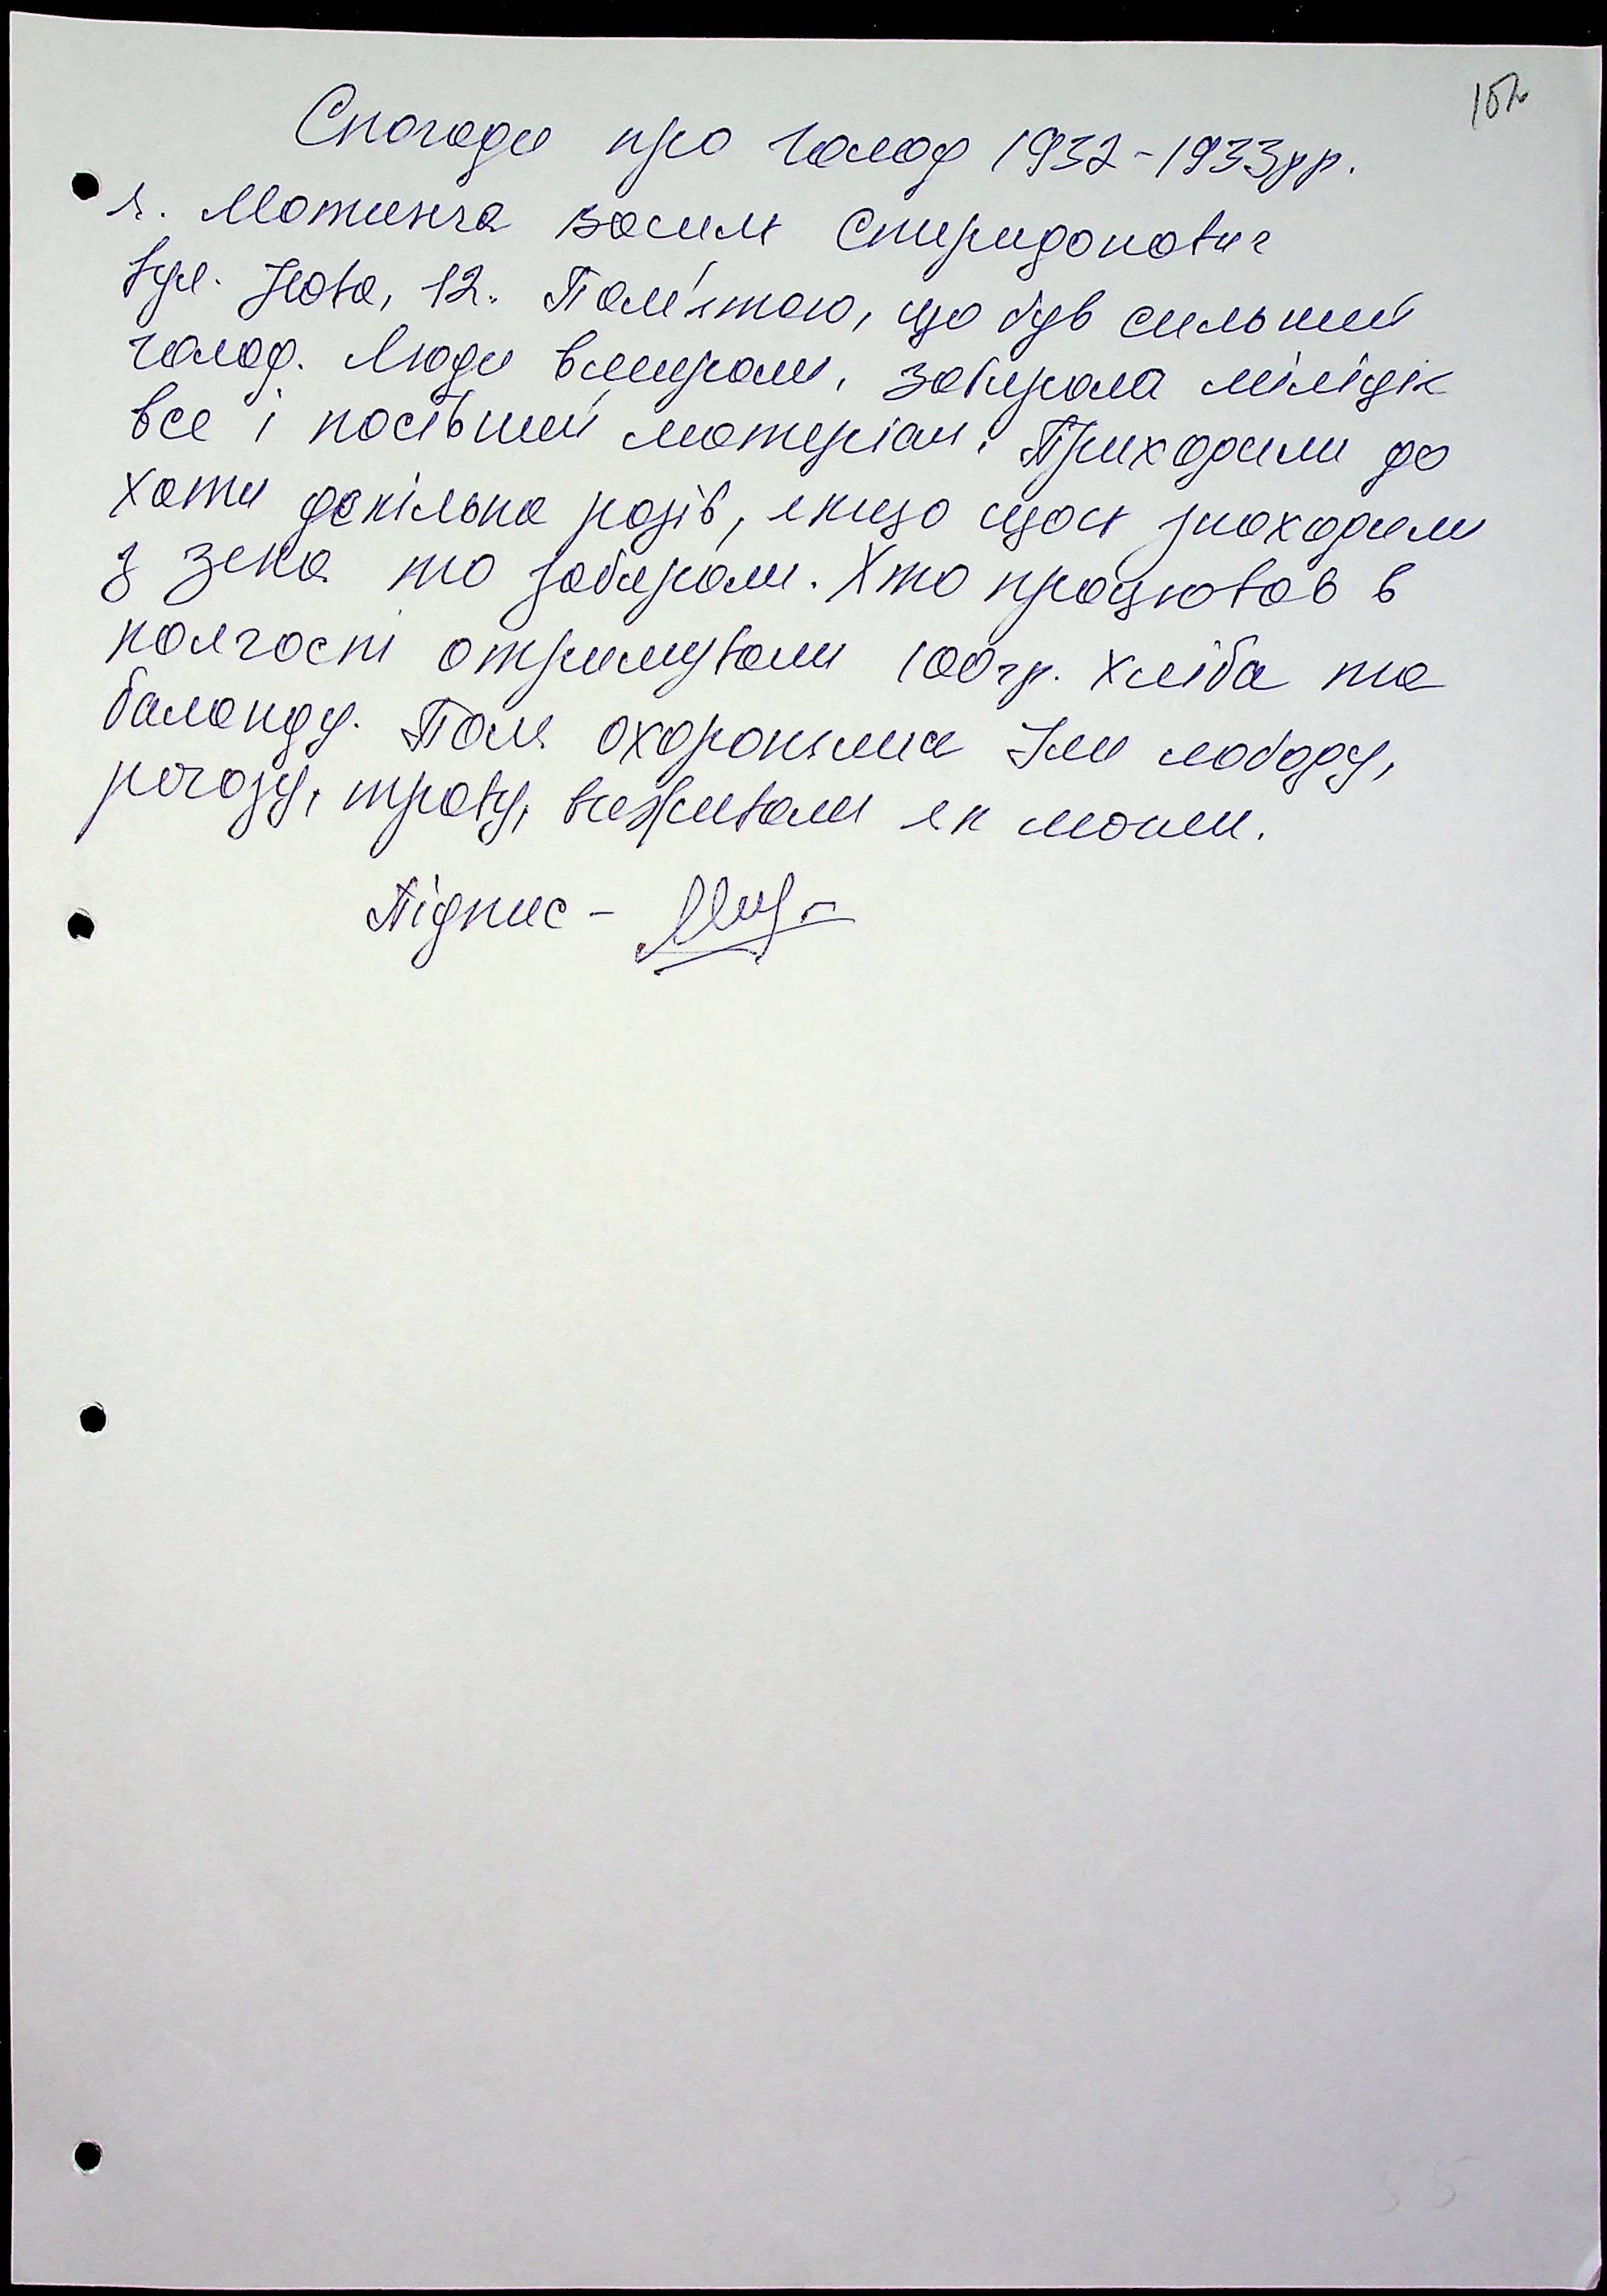 152
Спогади про голод 1932-1933рр.
я. Мотинга Василь Спиридонович
вул. Нова, 12. Пам'ятаю, що був сильний
голод. Люди вмирали, забирала міліція
все і посівний матеріал. Приходили до
хати декілька разів, якщо щось знаходили
з зена то забирали. Хто працював в
колгоспі отримували 100гр. хліба та
баланду. Поля охороняли Їли лободу,
рогозу, траву, виживали як могли.
Підпис -